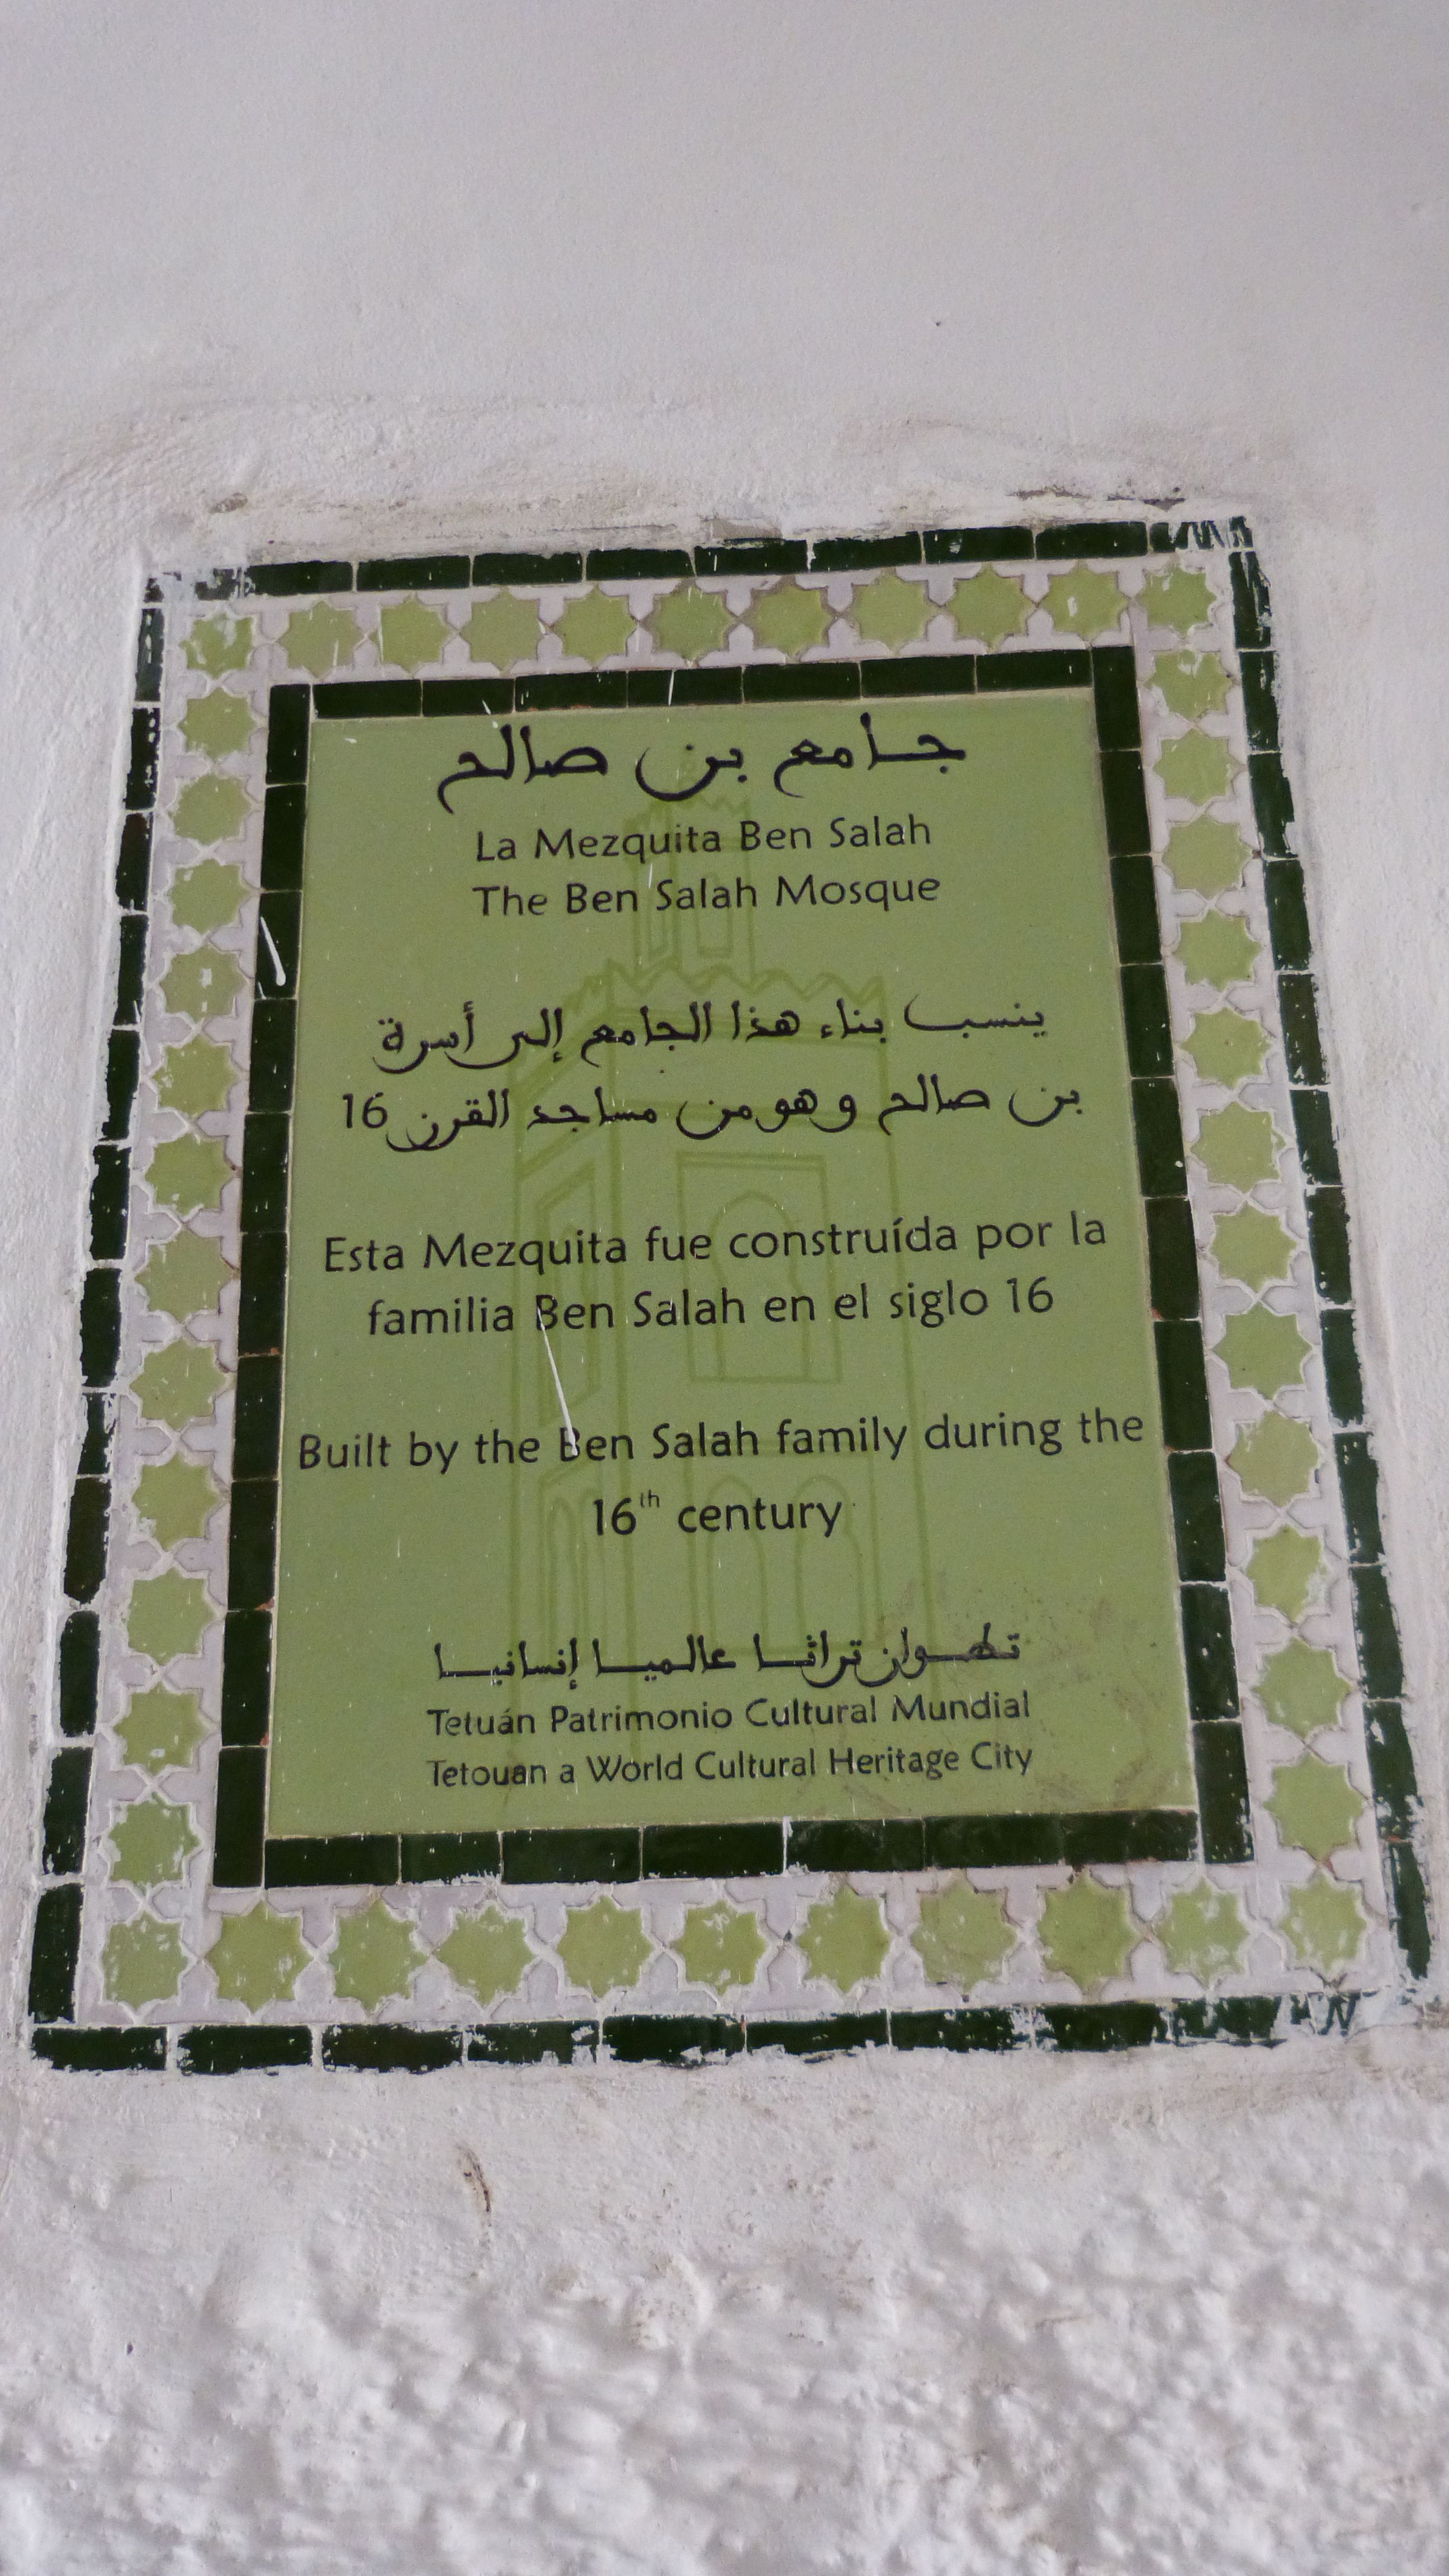 جامع بن صالح
La Mezquita Ben Salah
The Ben Salah Mosque
ينسب بناء هذا الجامع إلى أسرة
بن صالح وهو من مساجد القرن 16
Esta Mezquita fue construída por la
familia Ben Salah en el siglo 16
Built by the Ben Salah family during the
16th century
تطوان تراثا عالميا إنسانيا
Tetuán Patrimonio Cultural Mundial
Tetouan a World Cultural Heritage City